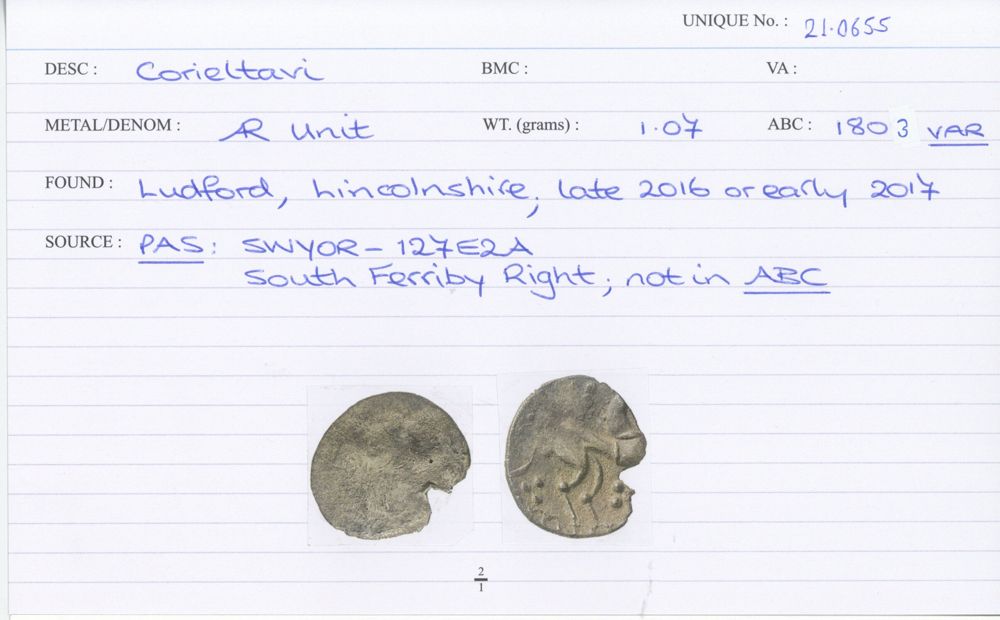 UNIQUE No. : 21.0655
DESC : Corieltavi BMC : VA :
METAL/DENOM : AR Unit WT. (grams) : 1.07 ABC : 1803 VAR
FOUND : Ludford, Lincolnshire, late 2016 or early 2017
SOURCE : PAS: SWYOR-127E2A
South Ferriby Right; not in ABC
2
1